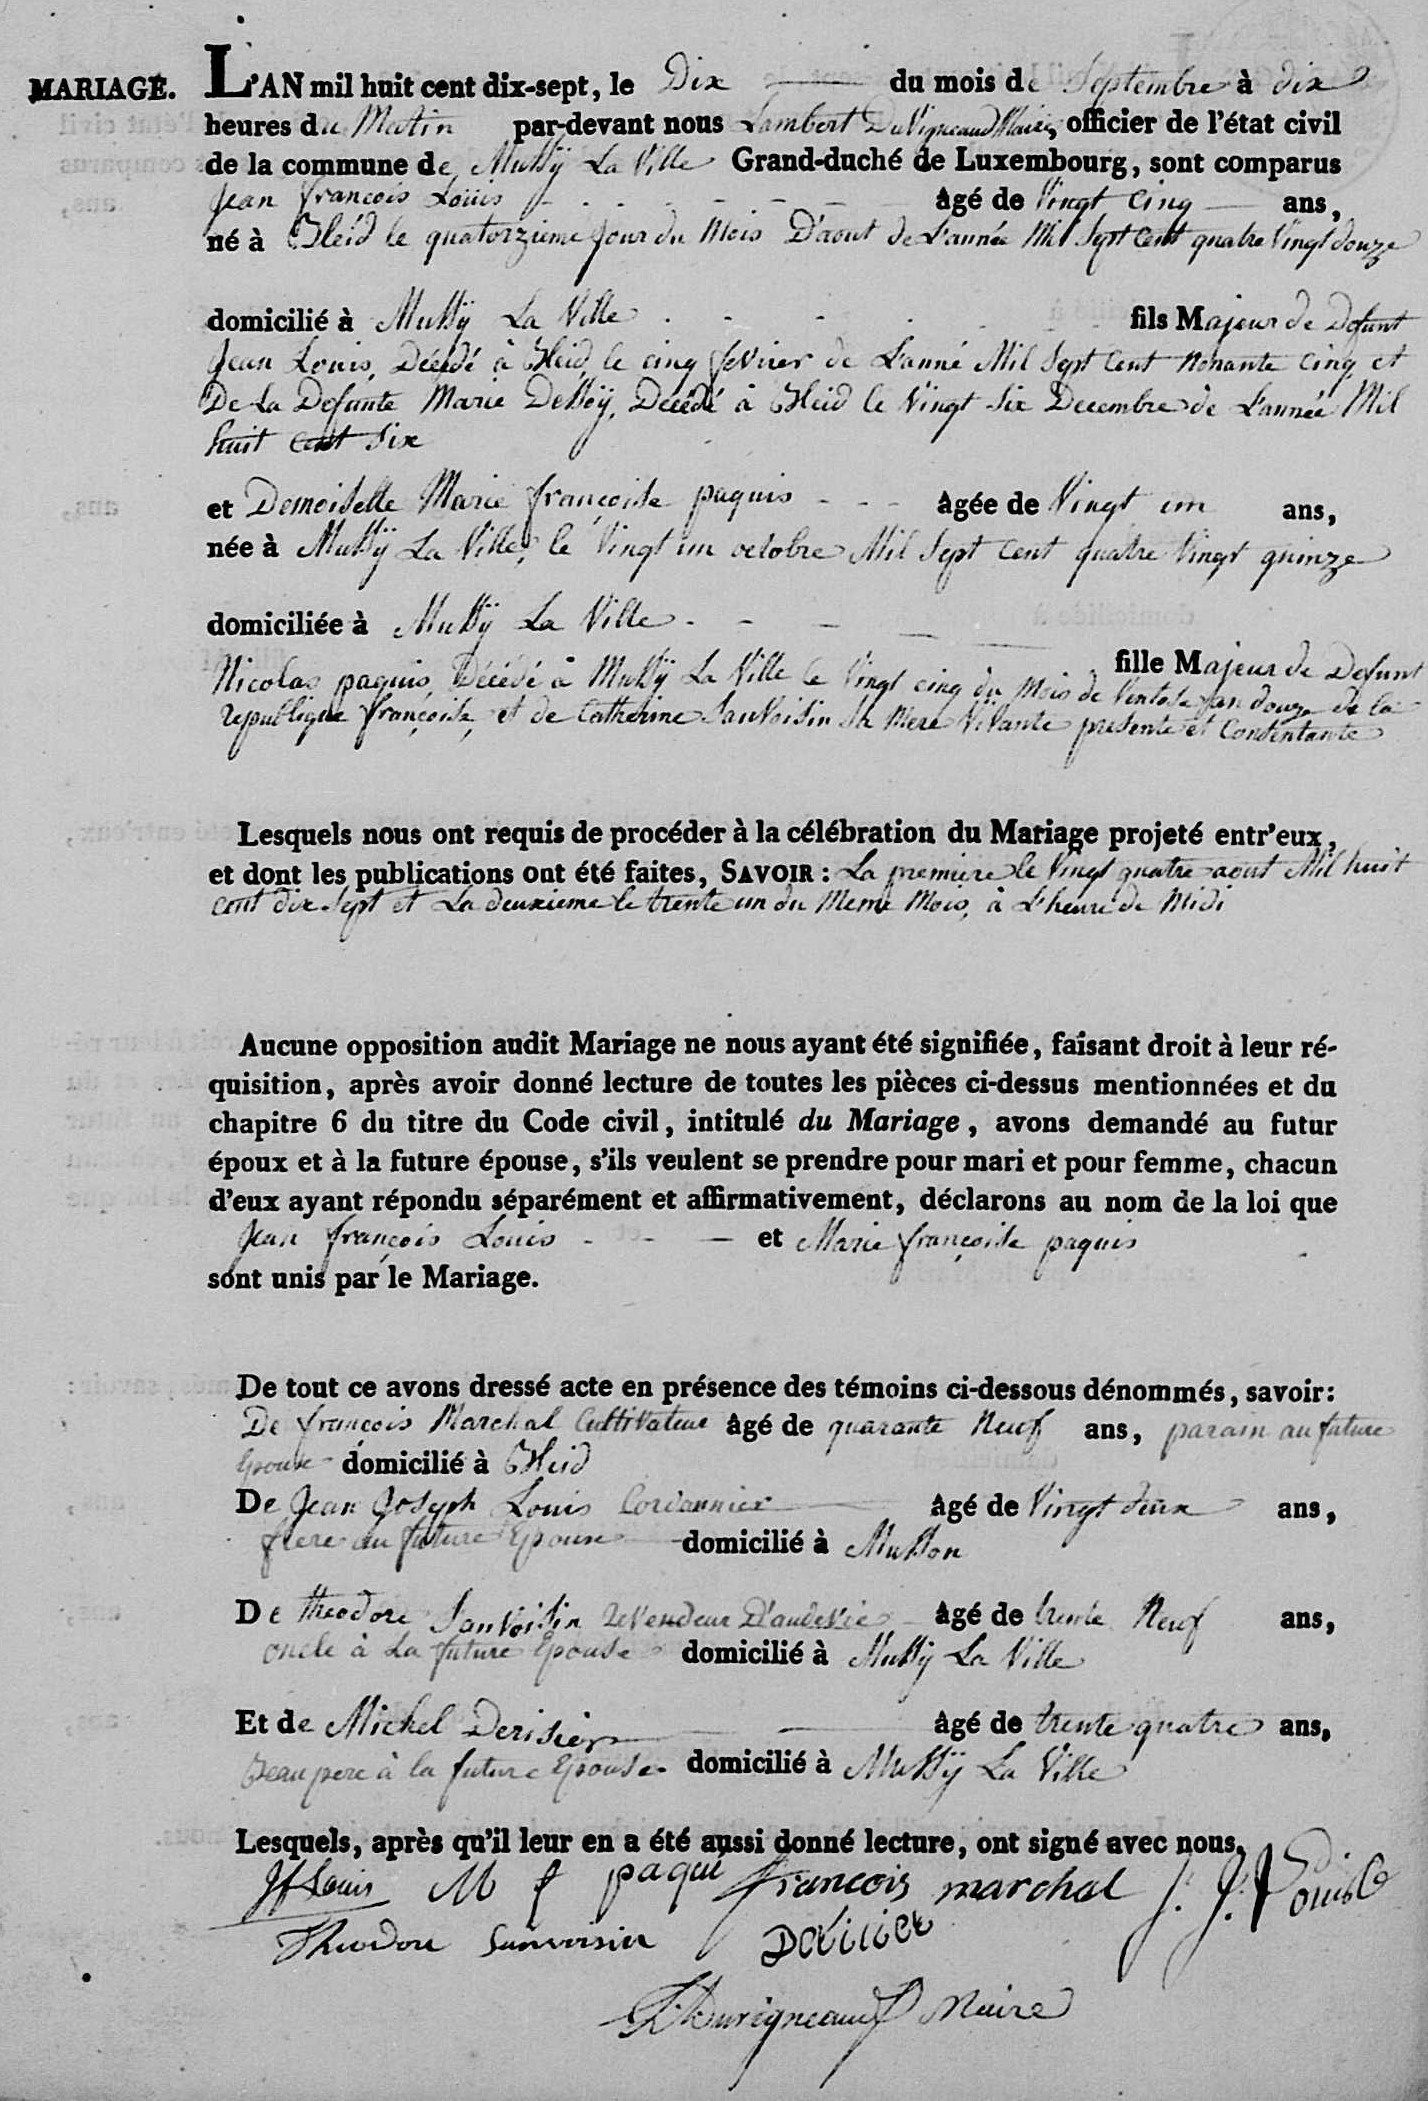 MARIAGE. L'AN mil huit cent dix-sept, le Dix du mois de Septembre à dix
heures du Matin par-devant nous Lambert DuVigneaud Maire, officier de l'état civil
de la commune de Mussÿ La Ville Grand-duché de Luxembourg, sont comparus
Jean françois Loüis âgé de Vingt Cinq ans,
né à Bleid le quatorzieme Jour du Mois D'aout de L'année Mil Sept Cent quatre Vingt douze
domicilié à Mussÿ La Ville fils Majeur de Defunt
Jean Louis, Décédé à Bleid, le cinq fevrier de L'anné Mil Sept Cent Nonante Cinq et
De La Defunte Marie Dessoÿ, Decédé à Bleid le Vingt Six Decembre de L'année Mil
huit Cent Six
et Demoiselle Marie françoise paquis âgée de Vingt un ans,
née à Mussÿ La Ville, le Vingt un octobre Mil Sept Cent quatre Vingt quinze
domiciliée à Mussÿ La Ville
fille Majeur de Defunt
Nicolas paquis, Décédé à Mussÿ La Ville le Vingt cinq du Mois de Ventose l'an douze de la
republique françoise, et de Catherine Sauvoisin Sa Mere Vivante presente et Consentante
Lesquels nous ont requis de procéder à la célébration du Mariage projeté entr'eux,
et dont les publications ont été faites, SAVOIR : La premiere le Vingt quatre aout Mil huit
cent dix Sept et La deuxieme le trente un du Meme Mois, à L'heure de Midi
Aucune opposition audit Mariage ne nous ayant été signifiée, faisant droit à leur ré-
quisition, après avoir donné lecture de toutes les pièces ci-dessus mentionnées et du
chapitre 6 du titre du Code civil, intitulé du Mariage, avons demandé au futur
époux et à la future épouse, s'ils veulent se prendre pour mari et pour femme, chacun
d'eux ayant répondu séparément et affirmativement, déclarons au nom de la loi que
Jean françois Louis et Marie françoise paquis
sont unis par le Mariage.
De tout ce avons dressé acte en présence des témoins ci-dessous dénommés, savoir:
De françois Marchal Cultivateur âgé de quarante Neuf ans, parain au future
Epoux domicilié à Bleid
De Jean Joseph Louis Cordonnier âgé de Vingt deux ans,
frere au future Epoux domicilié à Musson
De theodore Sauvoisin revendeur D'audevie âgé de trente Neuf ans,
oncle à La future Epouse domicilié à Mussÿ La Ville
Et de Michel Derisier âgé de trente quatre ans,
Beau pere à la future Epouse domicilié à Mussÿ La Ville
Lesquels, après qu'il leur en a été aussi donné lecture, ont signé avec nous.
Jf Louis M f paqui francois marchal J. J. Louis
Theodore Sauvoisin
L Duvigneaud Maire